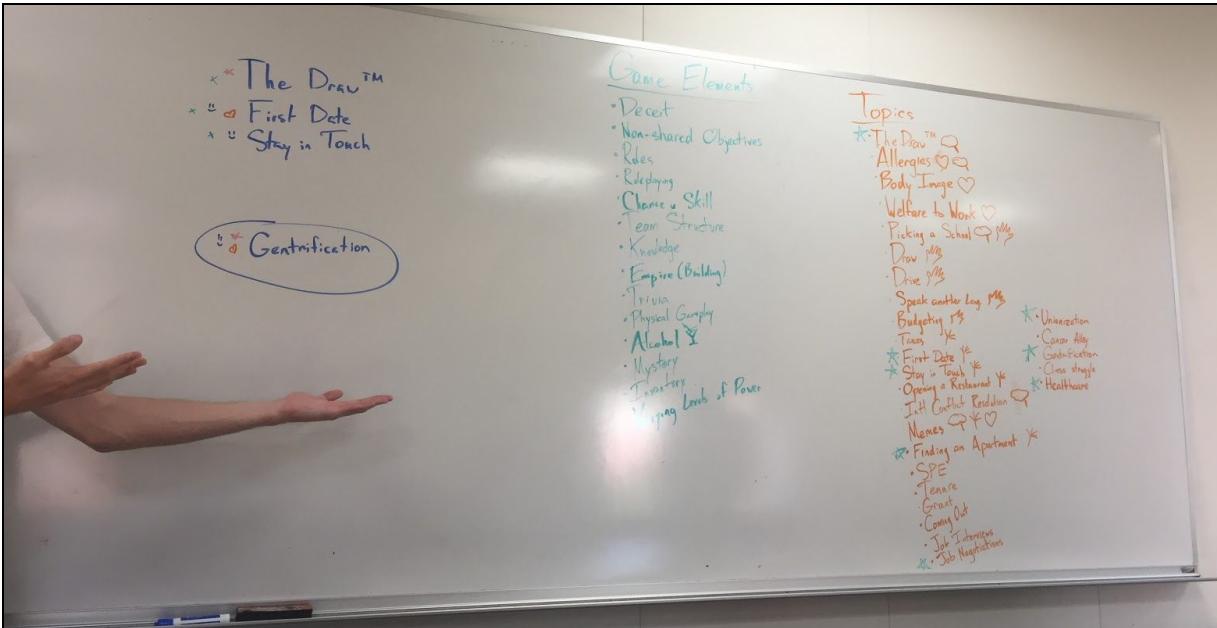 The Draw™
First Date
Stay in Touch
Gentrification
Game Elements
• Deceit
• Non-shared Objectives
• Roles
• Roleplaying
Chance v Skill
• Team Structure
• Knowledge
• Empire (Building)
• Trivia
• Physical Gameplay
• Alcohol
• Mystery
• Inventory
• Varying Levels of Power
Topics
• The Draw™
Allergies
• Body Image
• Welfare to Work
• Picking a School
• Draw
• Drive
Speak another Lang
• Budgeting
• Taxes
• First Date
• Stay in Touch
• Opening a Restaurant
• Int'l Conflict Resolution
Memes
• Finding an Apartment
• SPE
• Tenure
• Grant
• Coming Out
• Job Interviews
• Job Negotiations
• Unionization
• Cancer Alley
• Gentrification
• Class struggle
• Healthcare